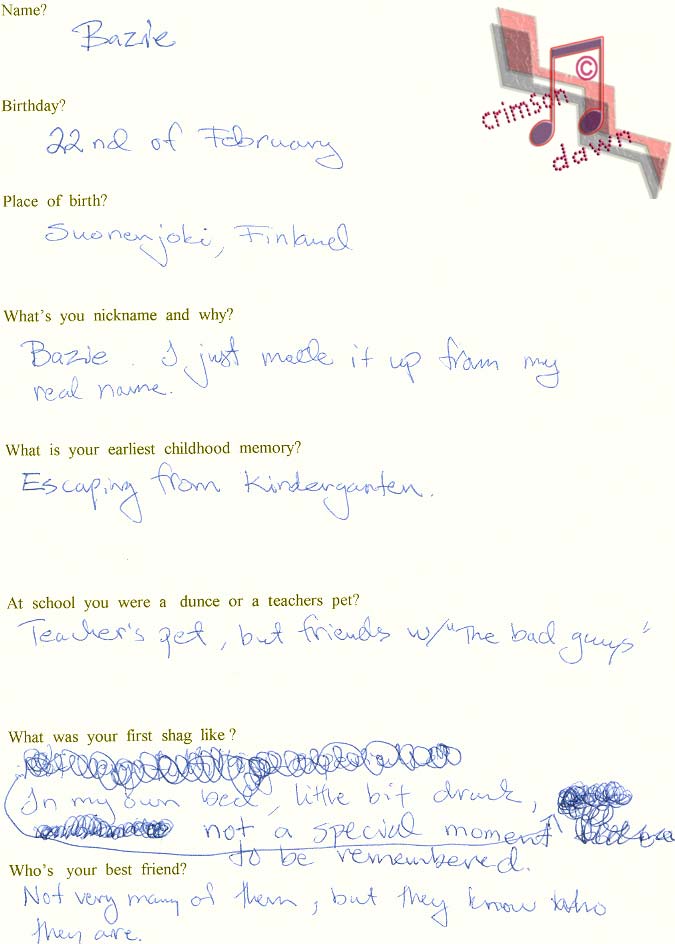 Name?
Bazie
crimson
©
dawn
Birthday?
22nd of February
Place of birth?
Suonenjoki, Finland
What's you nickname and why?
Bazie. I just made it up from my
real name.
What is your earliest childhood memory?
Escaping from Kindergarten.
At school you were a dunce or a teachers pet?
Teacher's pet, but friends w/ "The bad guys"
What was your first shag like?
In my own bed, little bit drunk,
not a special moment
to be remembered.
Who's your best friend?
Not very many of them, but they know who
they are.